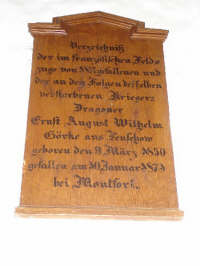 Verzeichniß
der im französischen Feld-
zuge von 18 gefallenen und
der an den Folgen desselben
verstorbenen Krieger:
Dragoner
Ernst August Wilhelm
Görke aus
geboren den 9 März 1850
gefallen am 10 Januar 1871
bei